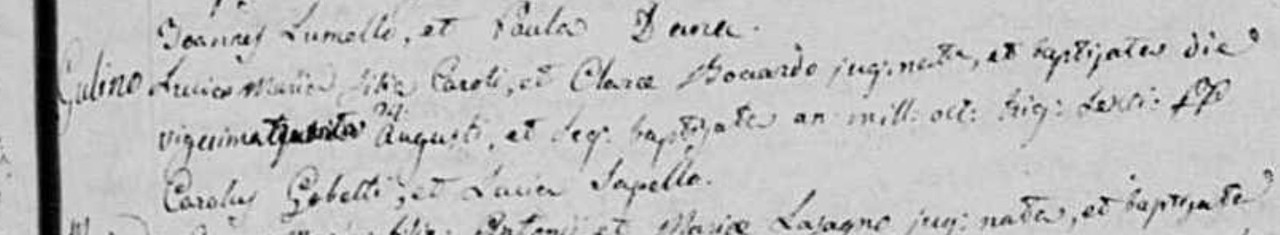 Joannes Lumello, et Paula Dana.
Gulino Lucia Maria filia Caroli, et Claræ Bocardo jug: nata, et baptizata die
vigesima quarta 24: Augusti, et seq: baptizata an: mill: oct: trig: sexti: PP
Carolus Gobetti, et Lucia Sapello.
filia Antonii et Mariæ Lasagno jug: nata, et baptizata